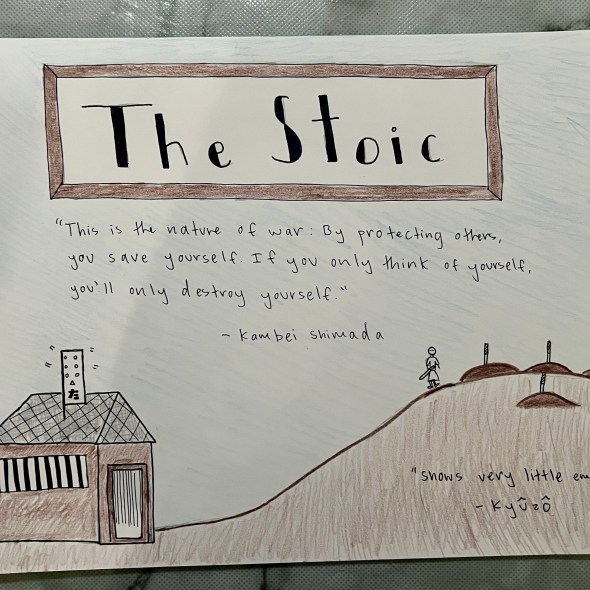 The Stoic
"This is the nature of war: By protecting others,
you save yourself. If you only think of yourself,
you'll only destroy yourself."
- Kambei Shimada
た
"shows very little
- Kyûzô